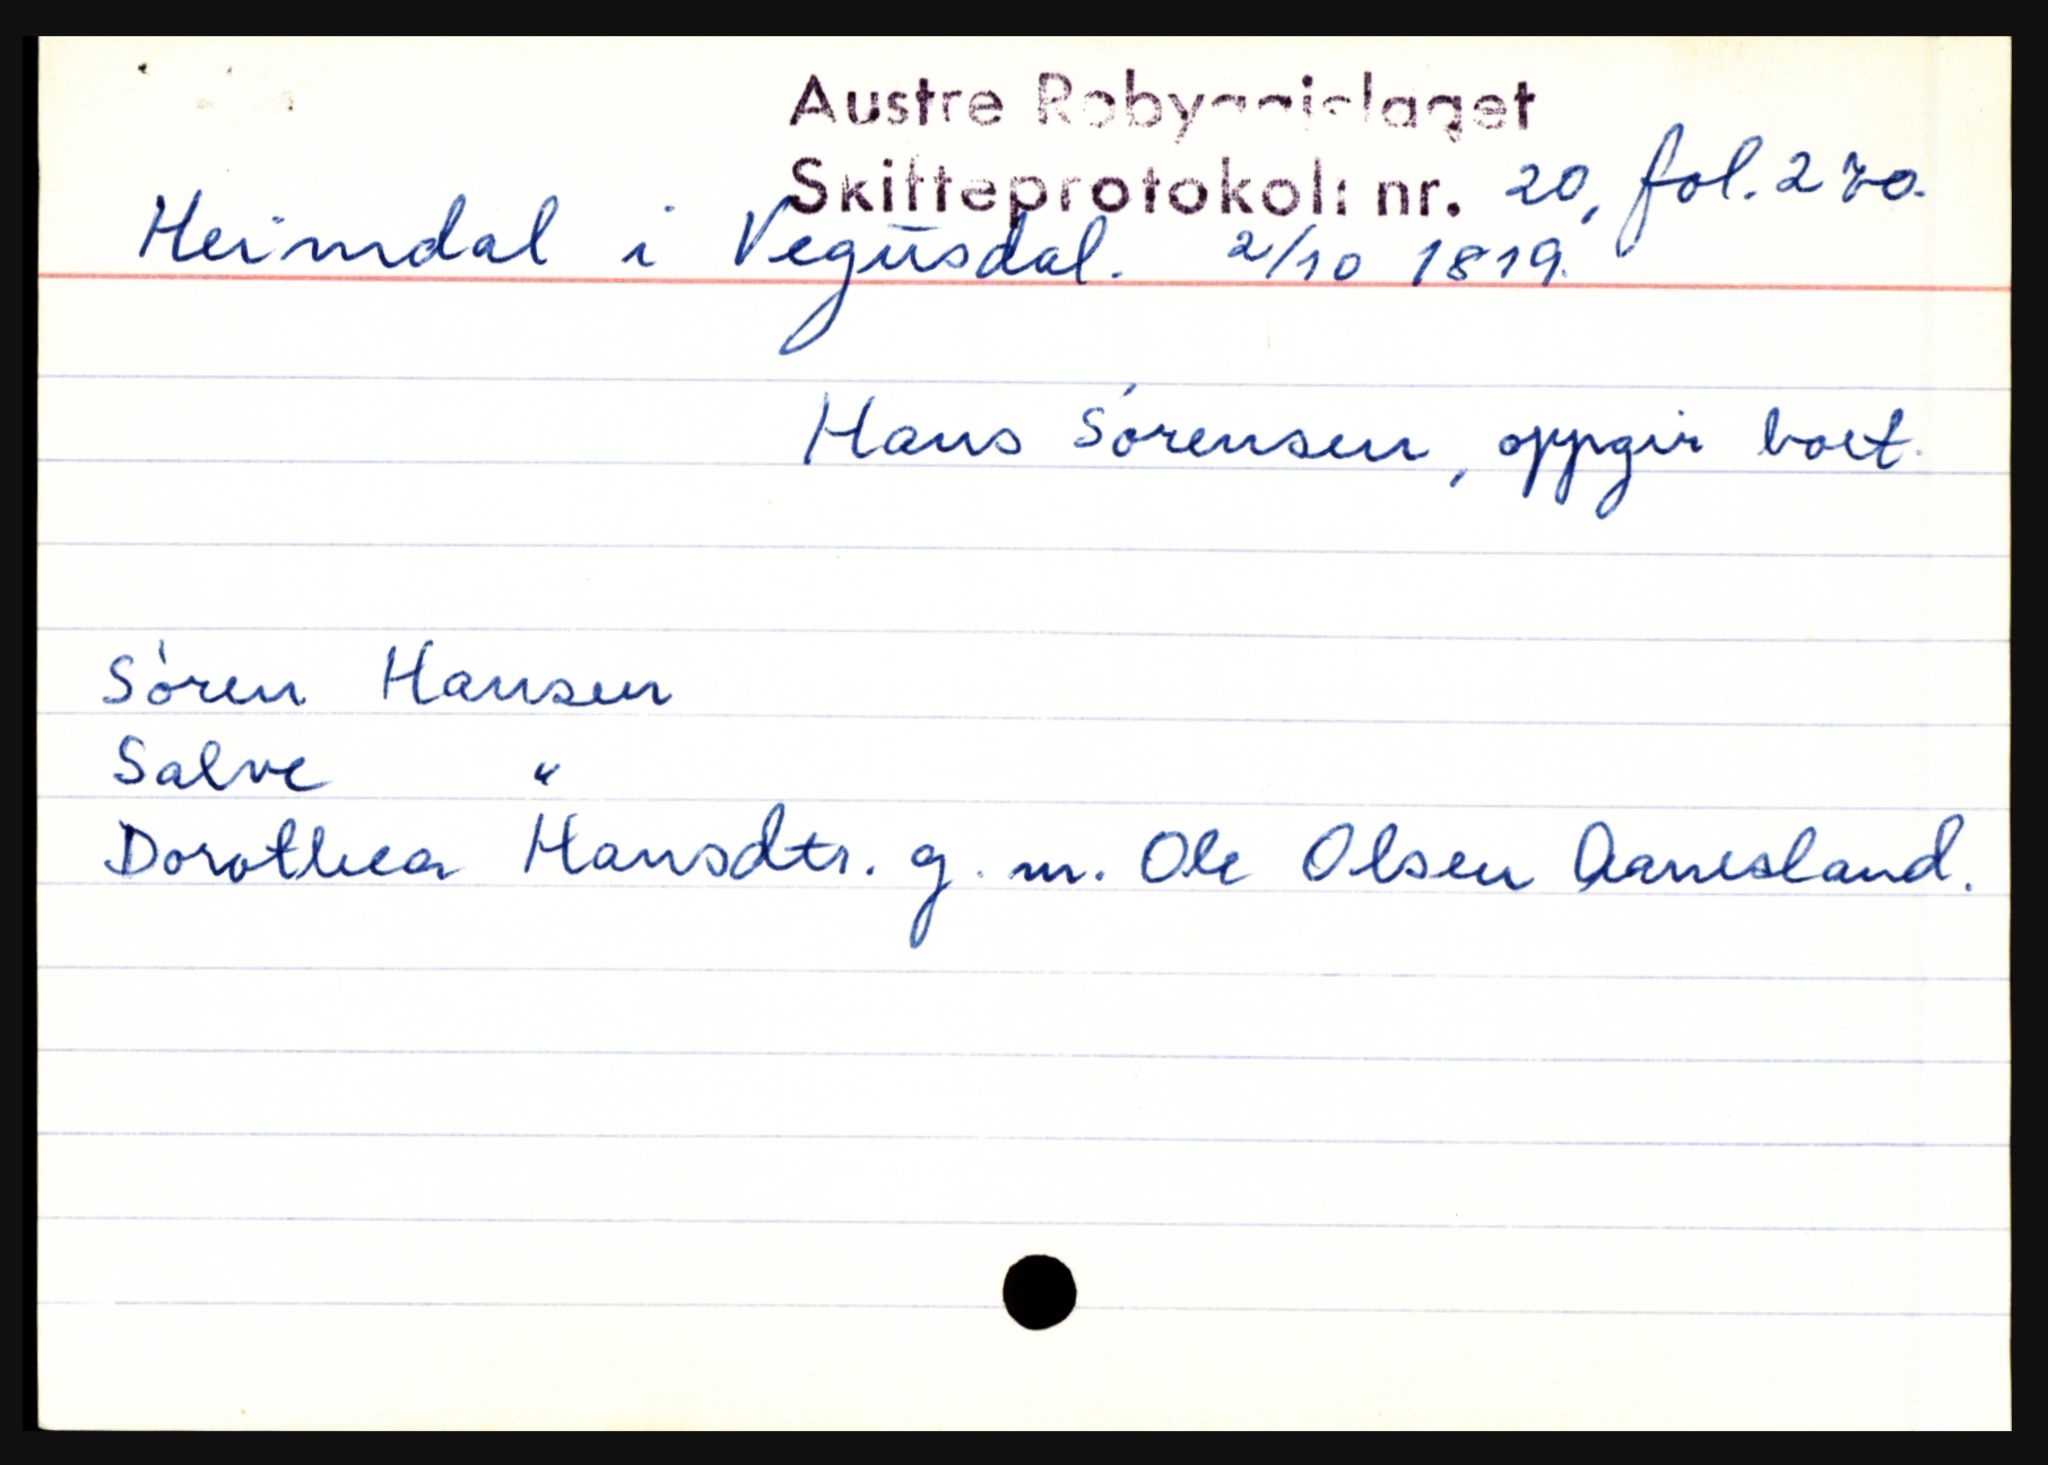 Austre Robyggjelaget
Skifteprotokoll nr. 20, fol. 270.
Heimdal i Vegusdal. 2/10 1819.
Hans Sórensen, oppgir boet.
Sóren Hansen
Salve "
Dorothea Hansdtr. g. m. Ole Olsen Aanesland.